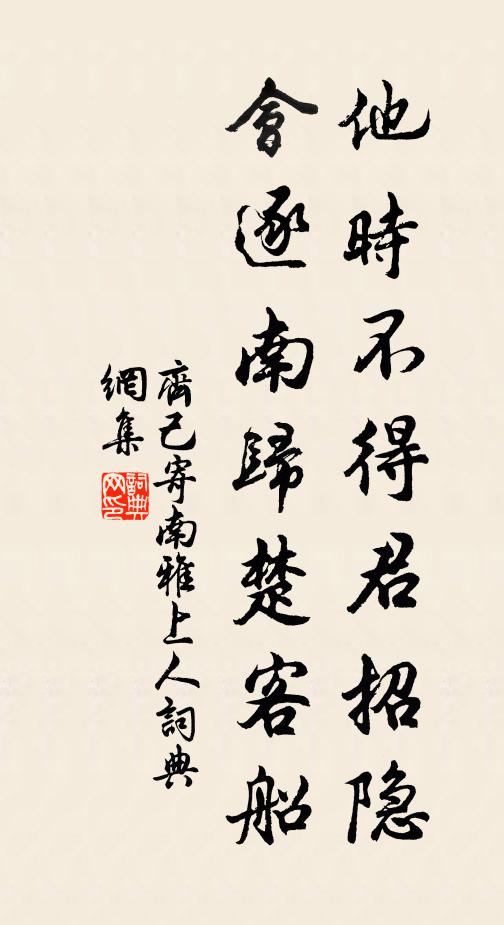 他時不得君招隐
會逐南歸楚客船
齊己寄南雅上人詞典
網集
詞典网印